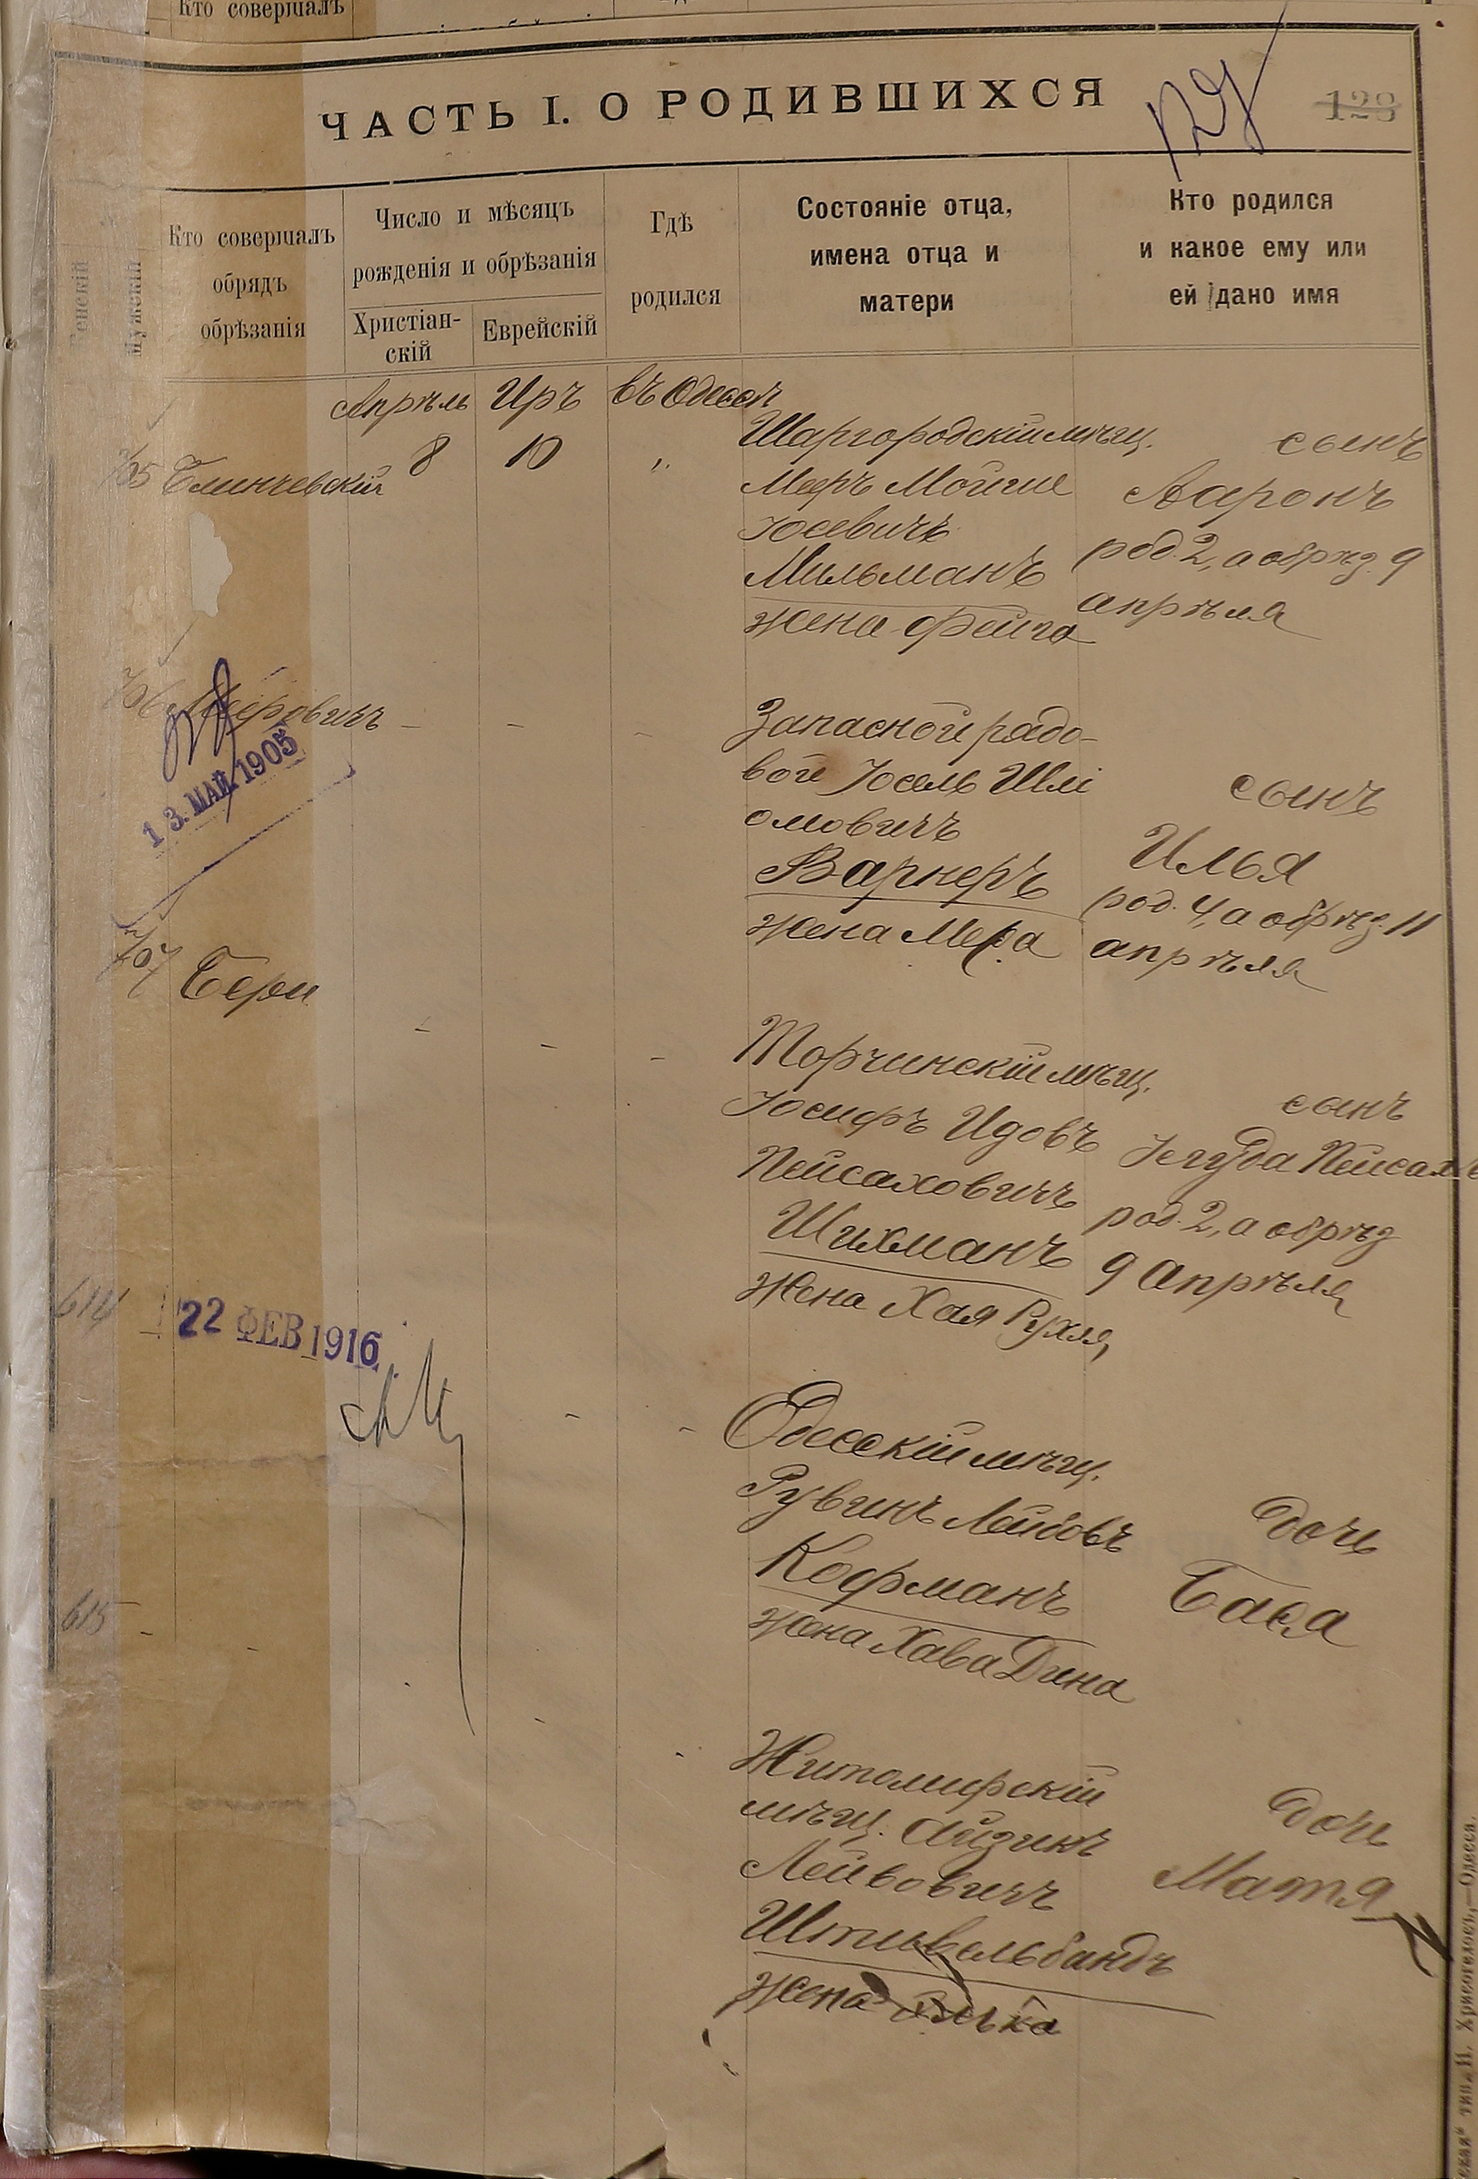 Кто совершалъ
ЧАСТЬ I. О РОДИВШИХСЯ
128
Женскій
Мужскій
Кто совершалъ
обрядъ
обрѣзанія
Число и мѣсяцъ
рожденія и обрѣзанія
Христіан-
скій
Еврейскій
Гдѣ
родился
Состояніе отца,
имена отца и
матери
Кто родился
и какое ему или
ей дано имя
Апрѣль Иръ въ Одессѣ
705 Блинчевскій 8 10 "
Шаргородскій мѣщ.
Меръ Мойше
Іосевичъ
Мильманъ
жена Фейга
сынъ
Ааронъ
род. 2, а обрѣз. 9
апрѣля
706 Меровичъ - - -
13. МАЙ 1905
Запасной рядо-
вой Іосель Шлі
омовичъ
Варнеръ
жена Мера
сынъ
Илья
род. 4, а обрѣз. 11
апрѣля
707 Бери - - -
Торчинскій мѣщ.
Іосифъ Идовъ
Пейсаховичъ
Шихманъ
жена Хая Рухля
сынъ
Іегуда Пейсахъ
род. 2, а обрѣз
9 апрѣля
614
22 ФЕВ 1916
Одесскій мѣщ.
Рувинъ Лейбовъ
Кофманъ
жена Хава Дина
дочь
Бася
615 - -
Житомирскій
мѣщ. Айзикъ
Лейбовичъ
Штивельбандъ
жена
дочь
Матя
тип. Н. Хрисогелосъ,—Одесса.